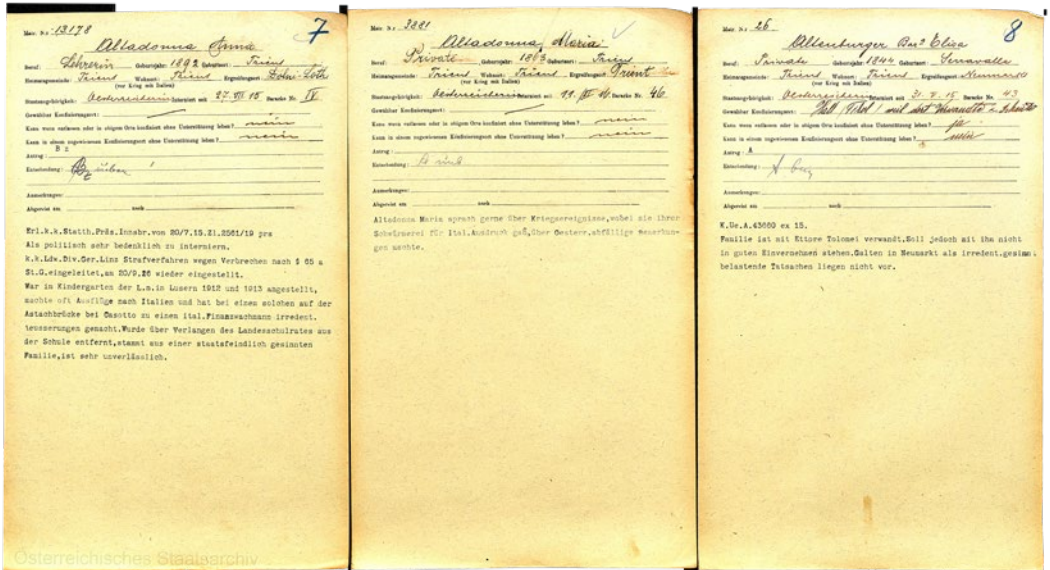 Matr. Nr. 13178
7
Altadonna Anna
Beruf: Lehrerin Geburtsjahr: 1892 Geburtsort: Trient
Heimatsgemeinde: Trient Wohnort: Trient Ergreifungsort:
(vor Krieg mit Italien)
Staatsangehörigkeit: Oesterreicherin Interniert seit 27. VII 15 Baracke Nr. IV
Gewählter Konfinierungsort:
Kann wenn entlassen oder in obigem Orte konfiniert ohne Unterstützung leben? nein
Kann in einem zugewiesenen Konfinierungsort ohne Unterstützung leben? nein
B z
Antrag:
Entscheidung:
Anmerkungen:
Abgereist am nach
Erl.k.k.Statth.Präs.Innsbr.von 20/7.15.Zl.2561/19 prs
Als politisch sehr bedenklich zu internieren.
k.k.Ldw.Div.Ger.Linz Strafverfahren wegen Verbrechen nach § 65 a
St.G.eingeleitet,am 20/9.26 wieder eingestellt.
War in Kindergarten der L.n.in Lusern 1912 und 1913 angestellt,
machte oft Ausflüge nach Italien und hat bei einem solchen auf der
Astachbrücke bei Casotto zu einen ital.Finanzwachmann irredent.
teusserungen gemacht.Wurde über Verlangen des Landesschulrates aus
der Schule entfernt,stammt aus einer staatsfeindlich gesinnten
Familie,ist sehr unverlässlich.
Österreichisches Staatsarchiv
Matr. Nr. 3881
Altadonna Maria
Beruf: Private Geburtsjahr: 1863 Geburtsort: Trient
Heimatsgemeinde: Trient Wohnort: Trient Ergreifungsort: Trient
(vor Krieg mit Italien)
Staatsangehörigkeit: Oesterreicherin Interniert seit 19. Baracke Nr. 46
Gewählter Konfinierungsort:
Kann wenn entlassen oder in obigem Orte konfiniert ohne Unterstützung leben? nein
Kann in einem zugewiesenen Konfinierungsort ohne Unterstützung leben? nein
Antrag:
Entscheidung:
Anmerkungen:
Abgereist am nach
Altadonna Maria sprach gerne über Kriegsereignisse,wobei sie ihrer
Schwärmerei für Ital.Ausdruck gab,über Oesterr.abfällige Bemerkun-
gen machte.
Matr. Nr. 26
8
Altenburger Elisa
Beruf: Private Geburtsjahr: 1844 Geburtsort: Serravalle
Heimatsgemeinde: Trient Wohnort: Trient Ergreifungsort: Neumarkt
(vor Krieg mit Italien)
Staatsangehörigkeit: Oesterreicherin Interniert seit 21. V. 15 Baracke Nr. 43
Gewählter Konfinierungsort: Hall Tirol weil dort
Kann wenn entlassen oder in obigem Orte konfiniert ohne Unterstützung leben? ja
Kann in einem zugewiesenen Konfinierungsort ohne Unterstützung leben? nein
Antrag: A
Entscheidung:
Anmerkungen:
Abgereist am nach
K.Ue.A.43660 ex 15.
Familie ist mit Ettore Tolomei verwandt.Soll jedoch mit ihm nicht
in guten Einvernehmen stehen.Galten in Neumarkt als irredent.gesinnt
belastende Tatsachen liegen nicht vor.